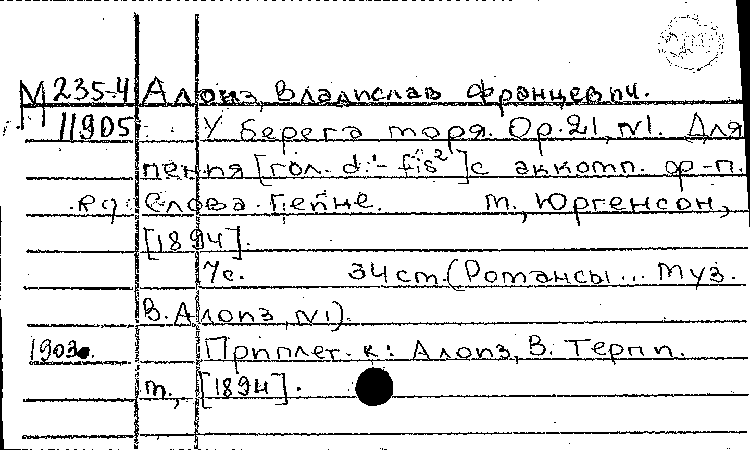 М 235-4 Алоиз, Владислав Францевич.
11905 У берега моря. Op. 21, №1. Для
пения [гол. d¹- fis²] с аккомп. ф-п.
Слова Гейне. М., Юргенсон,
[1894].
7с. 34 см. (Романсы... муз.
В. Алоиз, №1).
1903 Приплет. к: Алоиз, В. Терпи.
М., [1894].